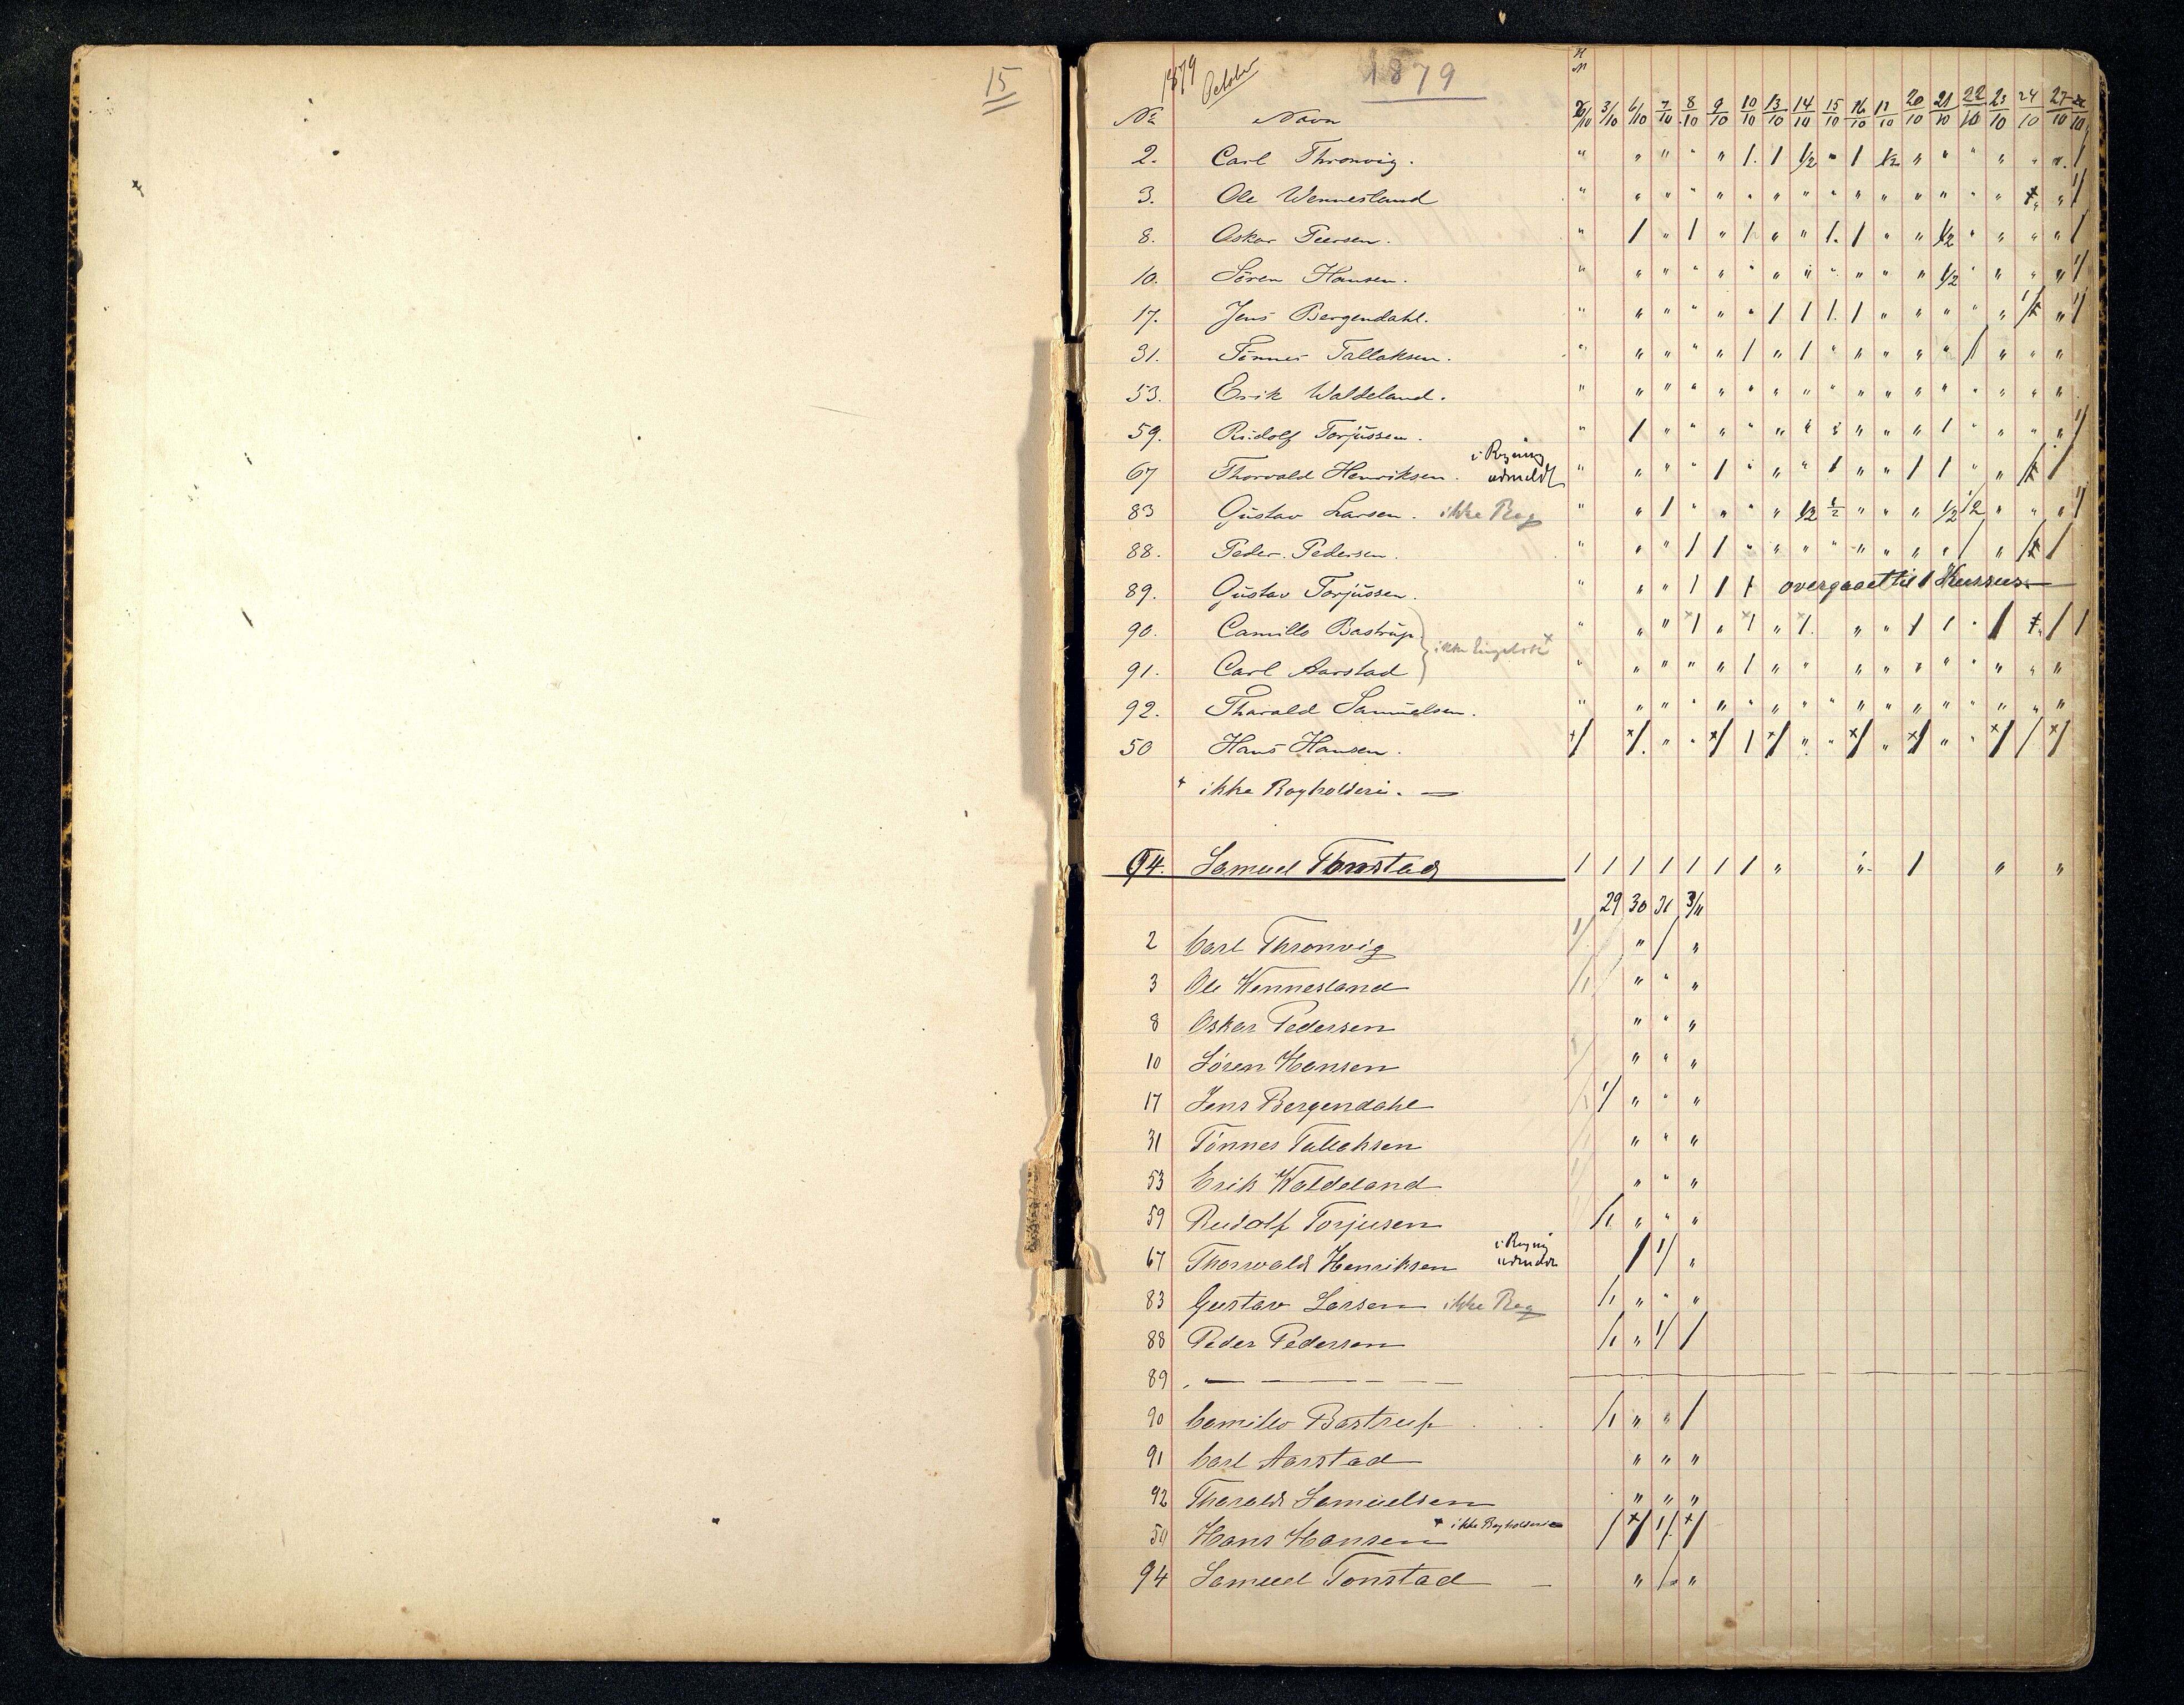 15
1879 October 1879
No Navn 3/10 6/10 7/10 8/10 9/10 10/10 13/10 14/10 15/10 16/10 17/10 20/10 21/10 22/10 23/10 24/10 27/10
2. Carl Thronvig. " " " " " 1. 1 1/2 " 1 1/2 " " " " " " 1
3. Ole Wennesland " " " " " " " " " " " " " " " " "
8. Oskar Peersen. " 1 " 1 " 1 " " 1. 1 " " 1/2 " " " " 1
10. Sören Hansen. " " " " " " " " " " " " 1/2 " " " "
17. Jens Bergendahl. " " " " " " 1 1 1. 1 " " " " "
31. Tönnes Tallaksen. " " " " " 1 " 1 " " " " " 1 " " "
53. Erik Waldeland. " " " " " " " " " " " " " " " " "
59. Rudolf Torjussen. " 1 " " " " " " " " " " 1 " " " "
67 Thorvald Henriksen. i Regning udmeldt " " " " 1 " " " 1 " " 1 1 " " 1
83 Gustav Larsen. ikke Bog " " 1 " " " " 1/2 1/2 " " " 1/2 1/2 " " "
88. Peder Pedersen. " " " 1 1 " " " " " " " " 1 " 1
89. Gustav Torjüssen. " " " 1 1 1 overgaaet til 1 Kursus
90. Camillo Bastrup
ikke Engelsk x
91. Carl Aarstad
92. Tharald Samuelsen. " " " " " " " " " " " " " " " " "
50 Hans Hansen.
+ ikke Bogholderi.
94. Samuel Tonstad 1 1 1 1 1 1 1 " " 1 " "
29 30 31 3/11
2 Carl Thronvig " / "
3 Ole Wennesland " " "
8 Oskar Pedersen " " "
10 Sören Hansen " " "
17 Jens Bergendahl 1/ " " "
31 Tönnes Tallaksen " " "
53 Erik Waldeland " " "
59 Rudolf Torjusen /1 " " "
67 Thorwald Henriksen i Regning udmeldt / 1/ "
83 Gustav Larsen ikke Bog /1 " " "
88 Peder Pedersen /1 " 1/ /
89 . — — — — — —
90 Camillo Bastrup /1 " " /
91 Carl Aarstad " " "
92 Tharald Samuelsen " " "
50 Hans Hansen + ikke Bogholderi / +/ 1/ +/
94 Samuel Tonstad — " / "